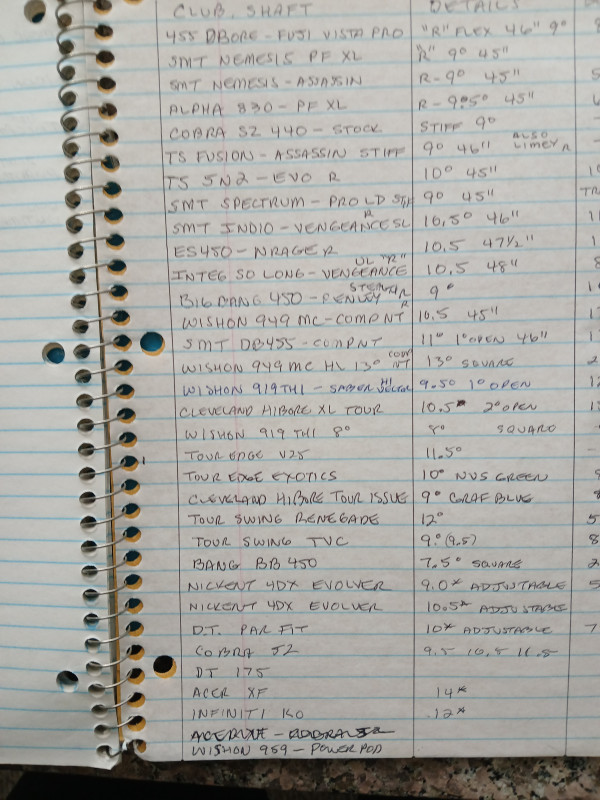 CLUB, SHAFT DETAILS
455 DBORE - FUJI VISTA PRO "R" FLEX 46" 9°
SMT NEMESIS PF XL "R" 9° 45"
SMT NEMESIS - ASSASSIN R - 9° 45"
ALPHA 830 - PF XL R - 9.5° 45"
COBRA SZ 440 - STOCK STIFF 9°
TS FUSION - ASSASSIN STIFF 9° 46" ALSO LIMEY R
TS 5N2 - EVO R 10° 45"
SMT SPECTRUM - PRO LD STIF 9° 45"
SMT INDIO - VENGEANCE SL R 10.5° 46"
ES450 - NRAGE R 10.5 47½"
INTEG SO LONG - VENGEANCE UL "R" 10.5 48"
BIG BANG 450 - 9°
WISHON 949 MC - COMPNT R 10.5 45"
SMT DB455 - COMPNT 11° 1° OPEN 46"
WISHON 949 MC HL 13° COMPNT 13° SQUARE
WISHON 919 THI - SABER HI VECTOR 9.5° 1° OPEN
CLEVELAND HIBORE XL TOUR 10.5* 2° OPEN
WISHON 919 THI 8° 8° SQUARE
TOUR EDGE V25 11.5°
TOUR EDGE EXOTICS 10° NVS GREEN
CLEVELAND HIBORE TOUR ISSUE 9° GRAF BLUE
TOUR SWING RENEGADE 12°
TOUR SWING TVC 9.° (9.5)
BANG BB 450 7.5° SQUARE
NICKENT 4DX EVOLVER 9.0* ADJUSTABLE
NICKENT 4DX EVOLVER 10.5* ADJUSTABLE
D.T. PAR FIT 10* ADJUSTABLE
COBRA 9.5 10.5 11.5
DT 175
ACER XF 14*
INFINITI KO 12*
WISHON 959 - POWERPOD